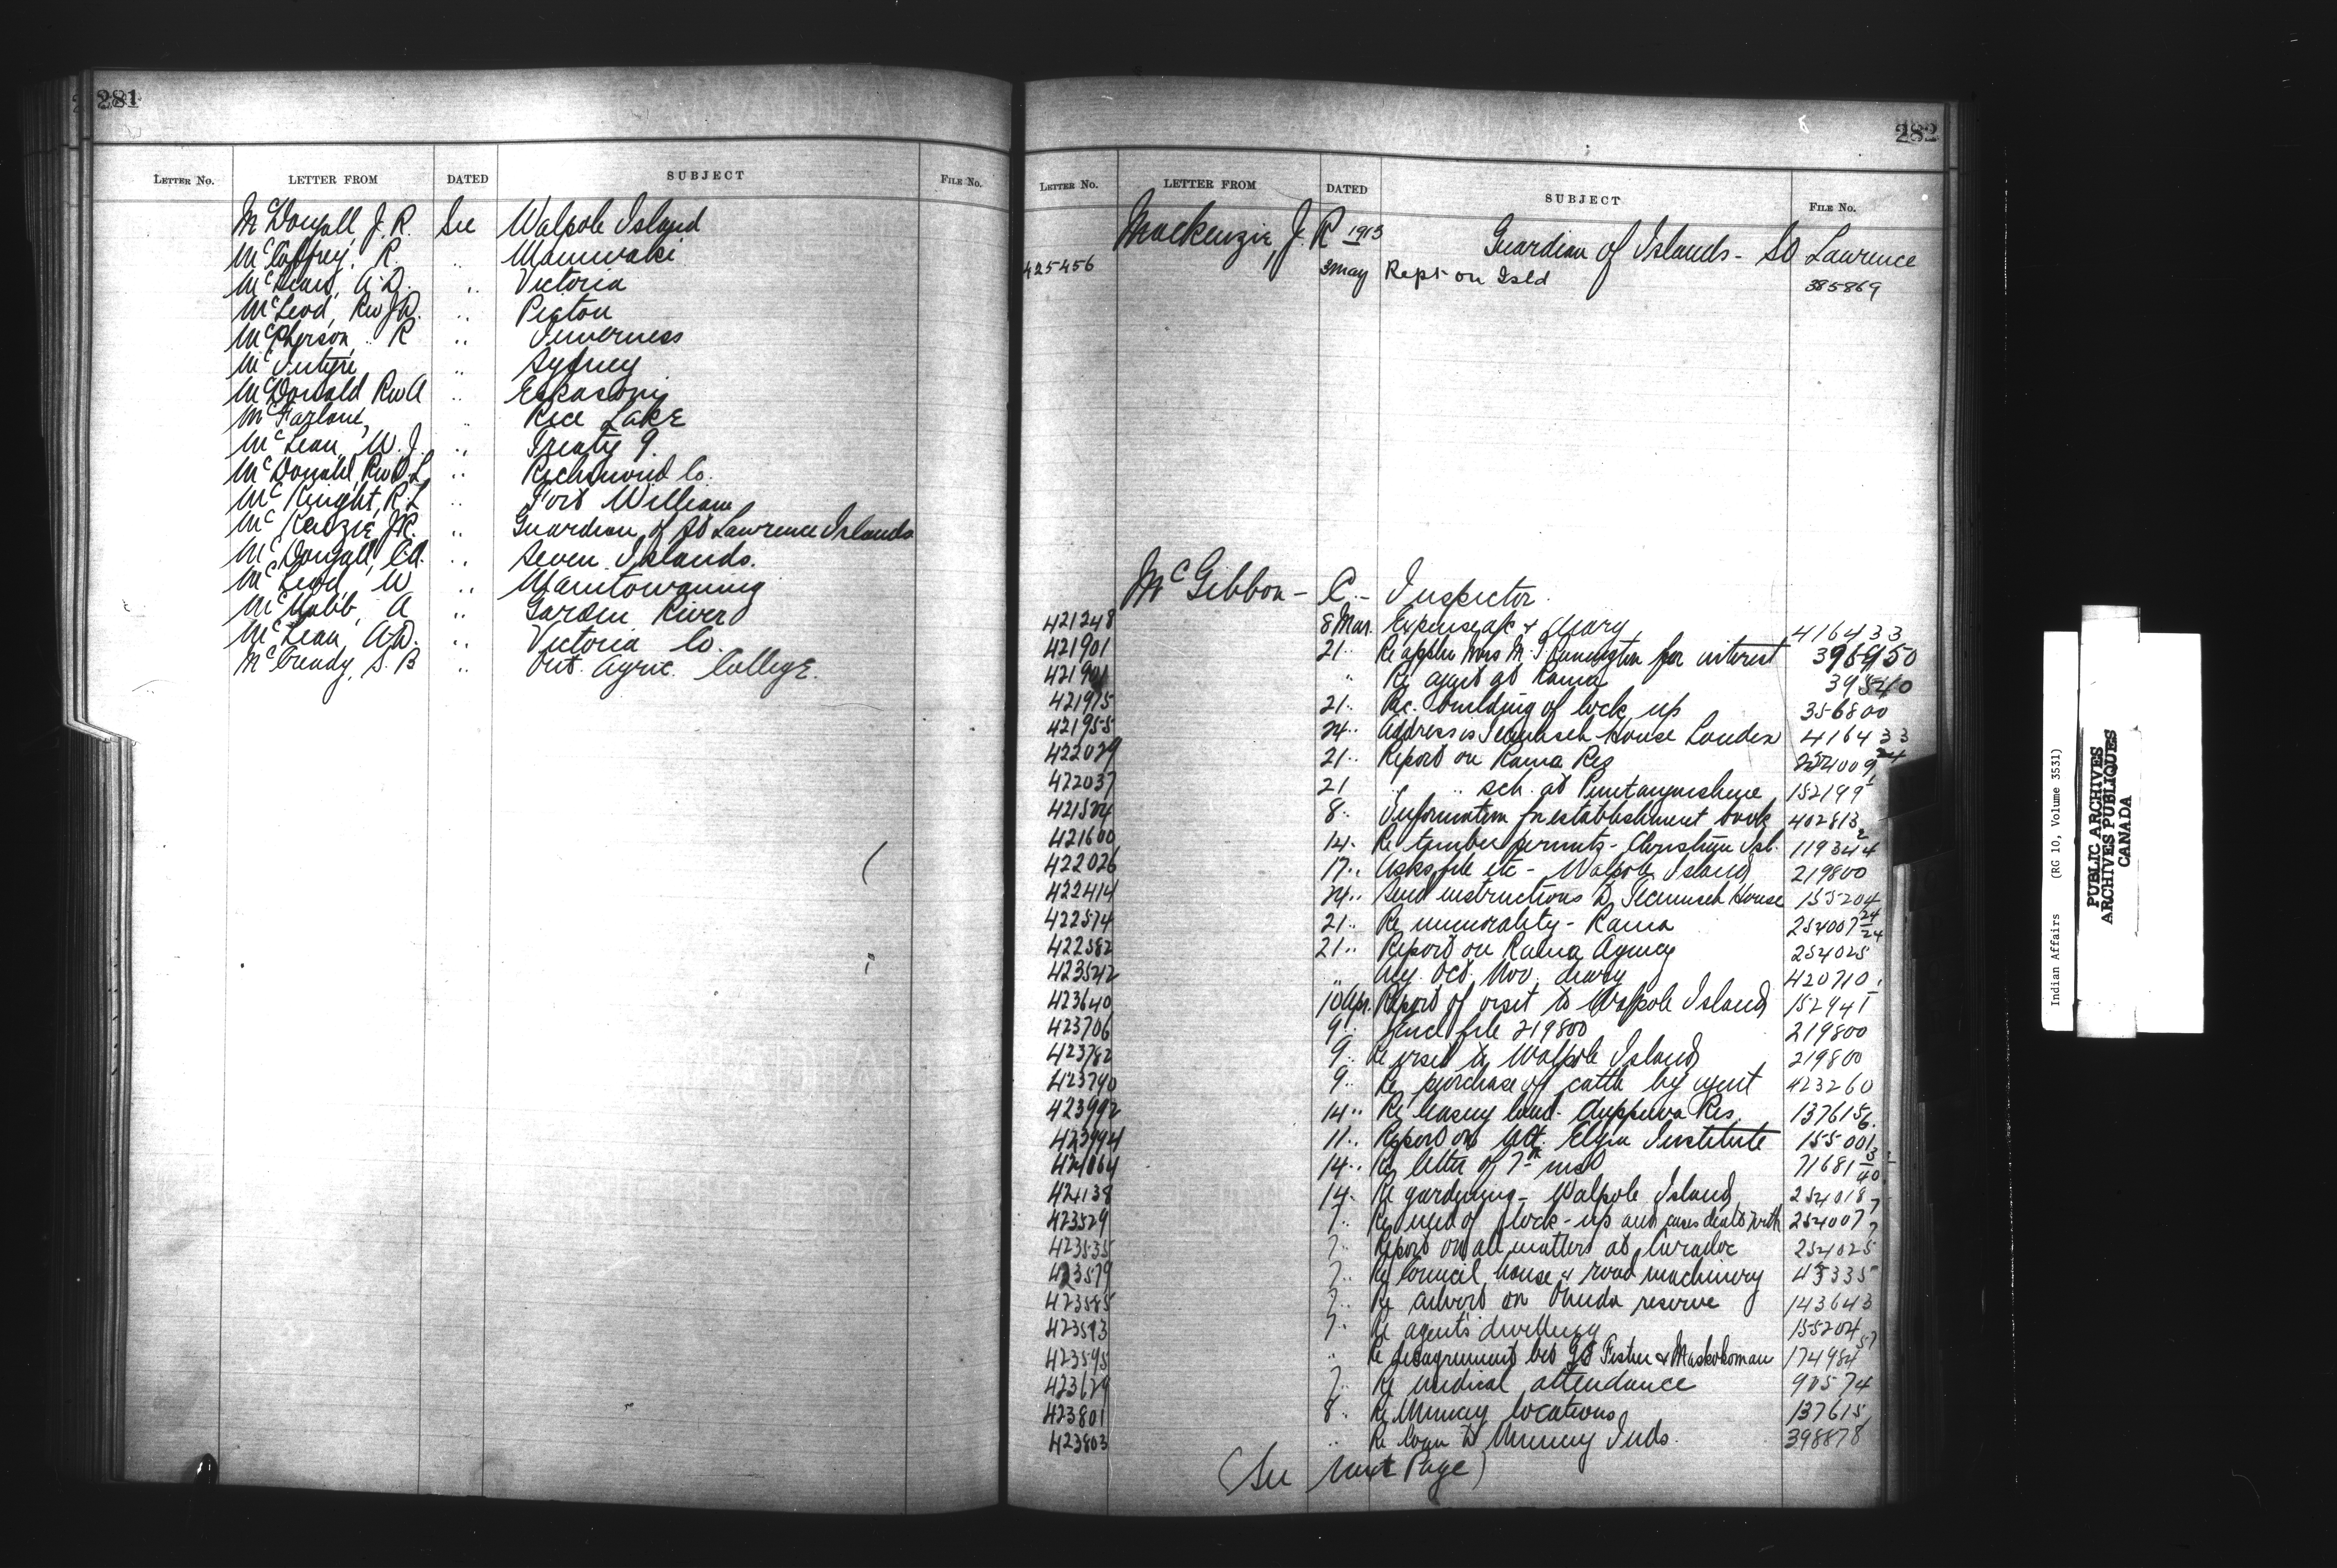 281
LETTER No. LETTER FROM DATED SUBJECT FILE No.
McDougall J. R. See Walpole Island
McCaffrey, R. .. Maniwaki
McLean, A.D. .. Victoria
McLeod, Rev J.D. .. Picton
McPherson .. R .. Inverness
McIntyre .. Sydney
McDonald Rev A .. Eskasoni
McFarlane, .. Rice Lake
McLean, W. J. .. Treaty 9.
McDonald, Rev D.L .. Richmond Co.
McKnight, R.L .. Fort William
McKenzie J.R. .. Guardian of St Lawrence Islands
McDougall, Ed. .. Seven Islands.
McLeod W .. Manitowaning
McNabb, A .. Garden River
McLean, A.D. .. Victoria Co.
McCready, S. B .. Ont. Agric. College.
282
LETTER No. LETTER FROM DATED SUBJECT FILE No.
Mackenzie, J. R 1913 Guardian of Islands - St Lawrence
425456 3 May Rept on Isld 385869
McGibbon - C. - Inspector.
421248 8 Mar. Expense a/c & diary 416433
421901 21.. Re appln Mrs M. J. for interest
4219 " Re agent at Rama
421915 21.. Re. building of lock up 356800
421955 24.. Address is Tecumseh House London 416433
422029 21.. Report on Rama Res 254009 24
422037 21 .. .. sch. at Penetanguishene 152199
421524 8.. Information for establishment book 402813
421600 14.. Re timber permits - Christian Isl. 119344
422026 17.. Asks file etc - Walpole Island 219800
422414 24.. Send instructions to Tecumseh House 155204
422574 21.. Re immorality - Rama 254007 24
422582 21.. Report on Rama Agency 254025 24
423542 " Oct. Nov. diary 420710
423640 10 Apr. Report of visit to Walpole Island 152941
423706 9.. file 219800 219800
423782 9.. Re visit to Walpole Island 219800
423790 9.. Re purchase of cattle by agent 423260
423992 14.. Re leasing land - Chippewa Res. 137615
423994 11.. Report on Mt. Elgin Institute 155001
424064 14.. Re letter of 7th inst 71681
424138 14.. Re gardening - Walpole Island 254018
423529 7.. Re need of lock-up and cases dealt with 254007
423535 7.. Report on all matters at Caradoc 254025
423579 7.. Re Council house & road machinery 45335
423585 7.. Re culvert on Oneida reserve 143643
423593 7.. Re agent's dwelling 155204
423595 .. Re disagreement bet Geo Fisher & Maskokoman 174984
423629 7.. Re medical attendance 90574
423801 8.. Re Muncey locations 137615
423803 .. Re loan to Muncey Inds. 398878
(See next Page)
Indian Affairs (RG 10, Volume 3531)
PUBLIC ARCHIVES
ARCHIVES PUBLIQUES
CANADA